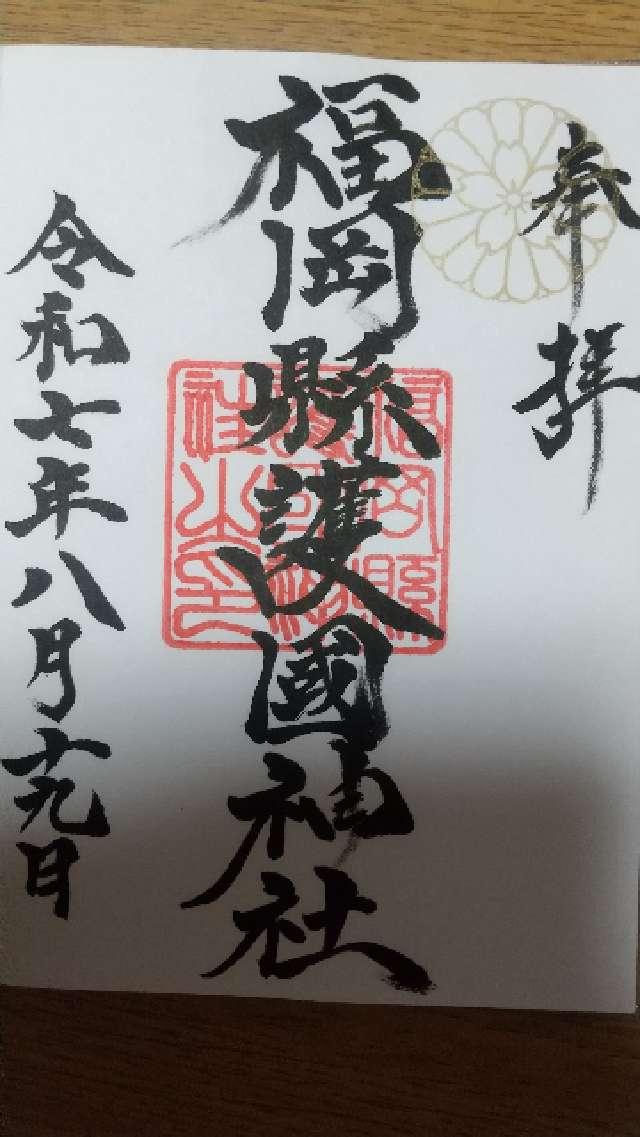 奉拝
福岡縣護國神社
令和七年八月十九日
福岡縣
護國神
社之印